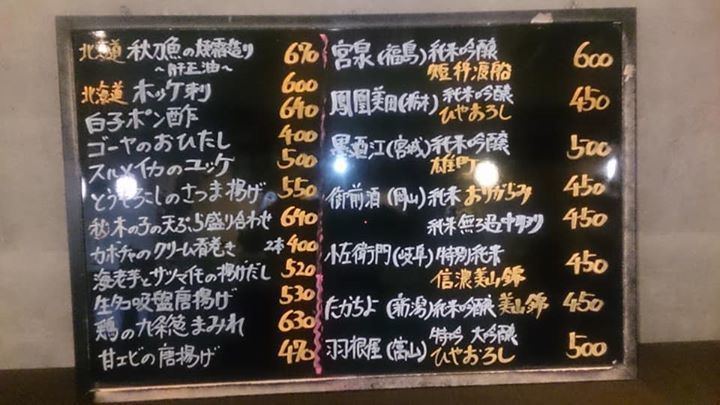 北海道 秋刀魚の燻霜造り 670
～肝正油～
北海道 ホッケ刺 600
白子ポン酢 640
ゴーヤのおひたし 400
スルメイカのユッケ 500
とうもろこしのさつま揚げ 550
秋木の子の天ぷら盛り合わせ 640
カボチャのクリーム春巻き 2本 400
海老芋とサツマイモの揚げだし 520
生タコ吸盤唐揚げ 530
鶏の九条葱まみれ 630
甘エビの唐揚げ 470
宮泉(福島)純米吟醸 600
短稈渡船
鳳凰美田(栃木)純米吟醸 450
ひやおろし
墨廼江(宮城)純米吟醸 500
雄町
御前酒(岡山)純米 おりがらみ 450
純米無ろ過中取り 450
小左衛門(岐阜)特別純米 450
信濃美山錦
たかちよ(新潟)純米吟醸 美山錦 450
羽根屋(富山)特吟 大吟醸 500
ひやおろし